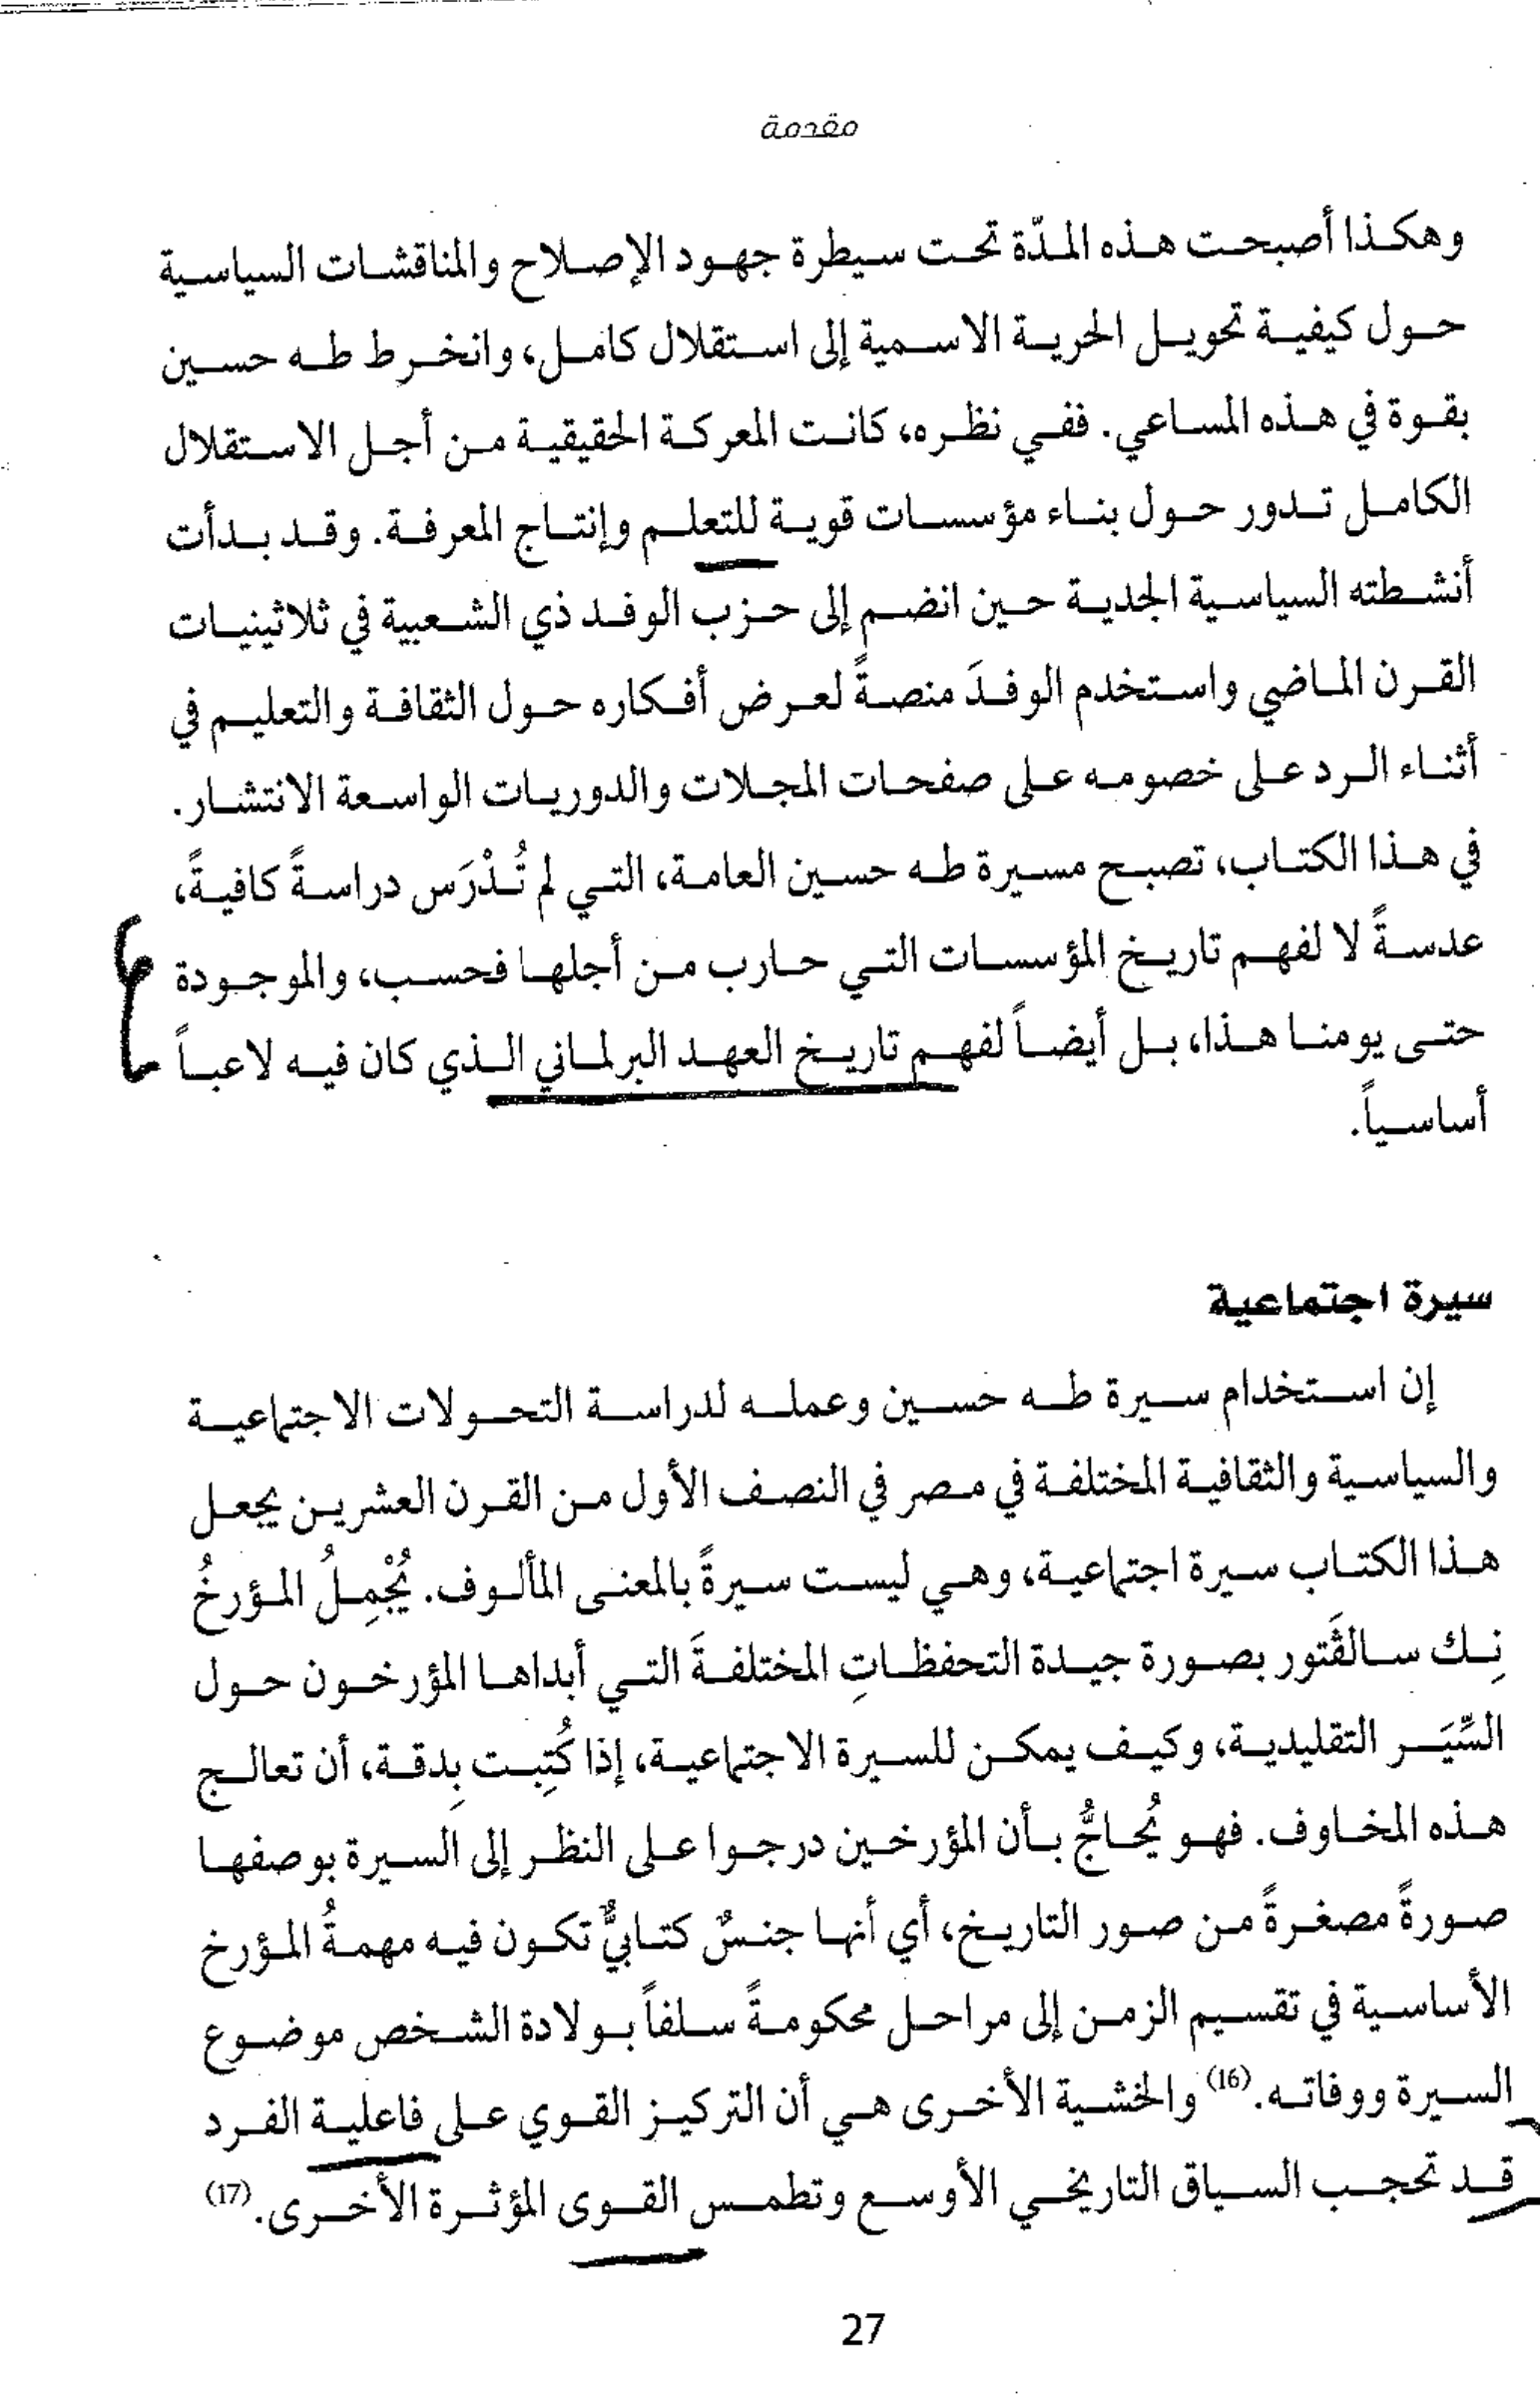 مقدمة
وهكذا أصبحت هذه المدّة تحت سيطرة جهود الإصلاح والمناقشات السياسية
حول كيفية تحويل الحرية الاسمية إلى استقلال كامل، وانخرط طه حسين
بقوة في هذه المساعي. ففي نظره، كانت المعركة الحقيقية من أجل الاستقلال
الكامل تدور حول بناء مؤسسات قوية للتعلم وإنتاج المعرفة. وقد بدأت
أنشطته السياسية الجدية حين انضم إلى حزب الوفد ذي الشعبية في ثلاثينيات
القرن الماضي واستخدم الوفدَ منصةً لعرض أفكاره حول الثقافة والتعليم في
أثناء الرد على خصومه على صفحات المجلات والدوريات الواسعة الانتشار.
في هذا الكتاب، تصبح مسيرة طه حسين العامة، التي لم تُدْرَس دراسةً كافيةً،
عدسةً لا لفهم تاريخ المؤسسات التي حارب من أجلها فحسب، والموجودة
حتى يومنا هذا، بل أيضاً لفهم تاريخ العهد البرلماني الذي كان فيه لاعباً
أساسياً.
سيرة اجتماعية
إن استخدام سيرة طه حسين وعمله لدراسة التحولات الاجتماعية
والسياسية والثقافية المختلفة في مصر في النصف الأول من القرن العشرين يجعل
هذا الكتاب سيرة اجتماعية، وهي ليست سيرةً بالمعنى المألوف. يُجْمِلُ المؤرخُ
نِك سالڤَتور بصورة جيدة التحفظاتِ المختلفةَ التي أبداها المؤرخون حول
السِّيَر التقليدية، وكيف يمكن للسيرة الاجتماعية، إذا كُتِبت بِدقة، أن تعالج
هذه المخاوف. فهو يُحاجُّ بأن المؤرخين درجوا على النظر إلى السيرة بوصفها
صورةً مصغرةً من صور التاريخ، أي أنها جنسٌ كتابيٌّ تكون فيه مهمةُ المؤرخ
الأساسية في تقسيم الزمن إلى مراحل محكومةً سلفاً بولادة الشخص موضوع
السيرة ووفاته.(16) والخشية الأخرى هي أن التركيز القوي على فاعلية الفرد
قد تحجب السياق التاريخي الأوسع وتطمس القوى المؤثرة الأخرى.(17)
27